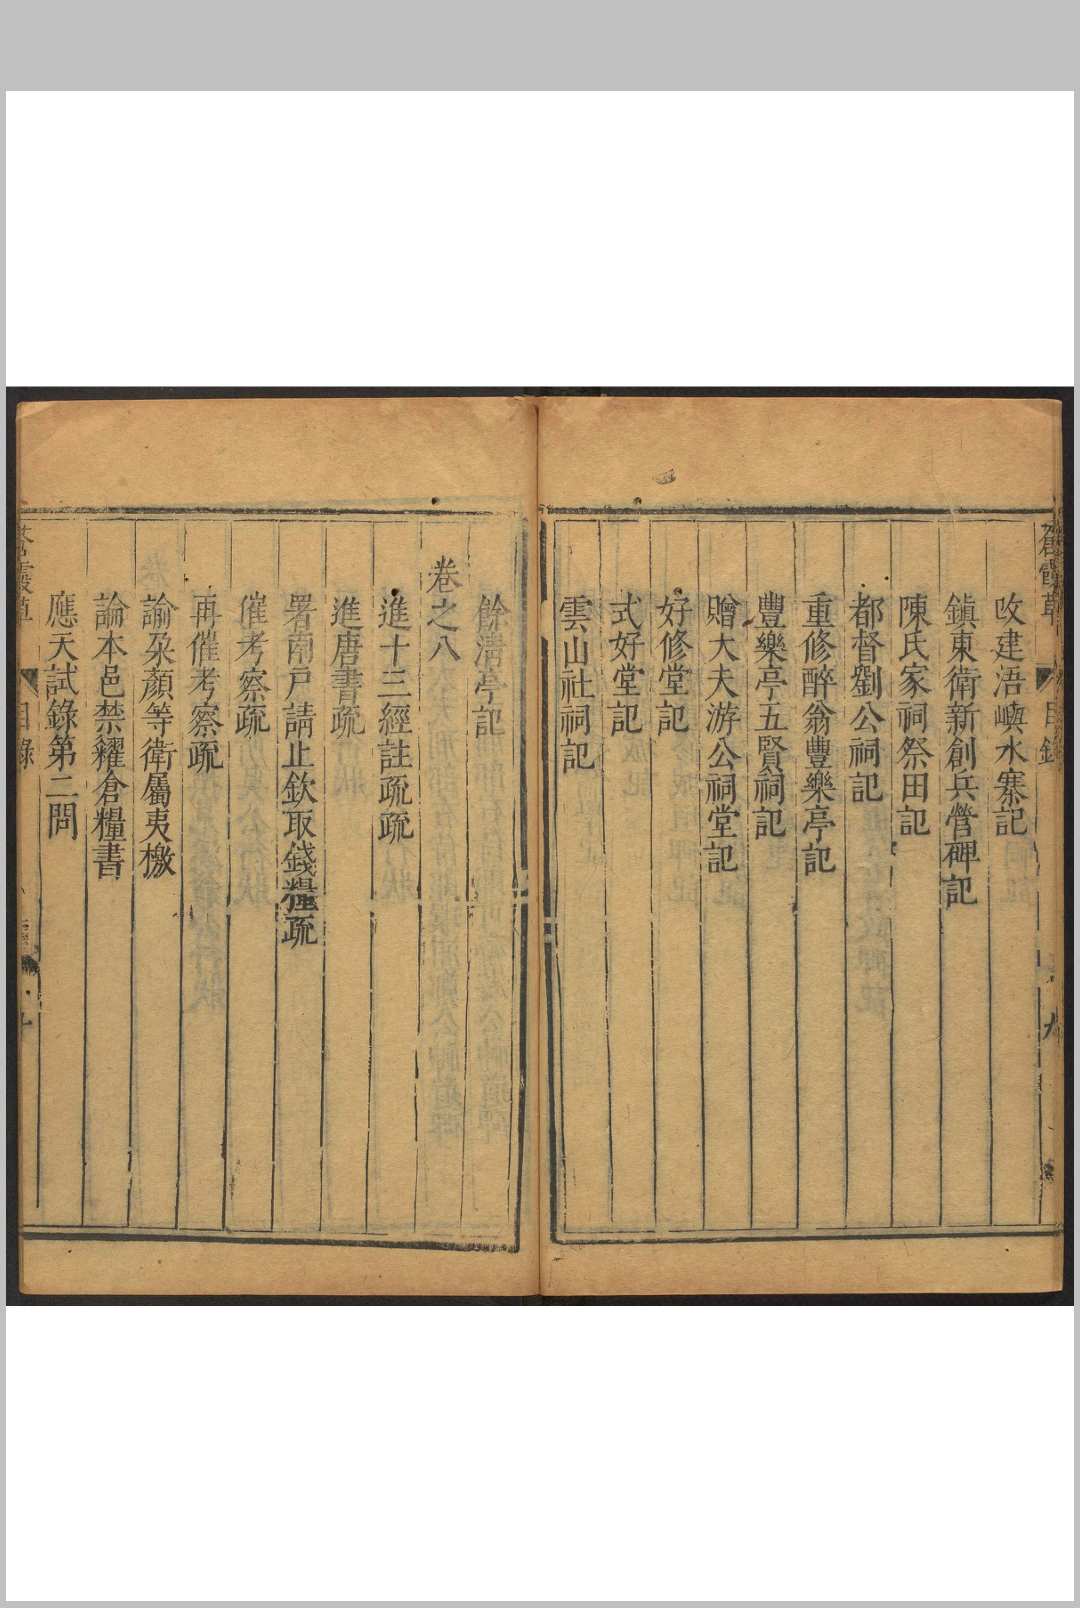 蒼霞草
目錄
九
改建浯嶼水寨記
鎮東衛新創兵營碑記
陳氏家祠祭田記
都督劉公祠記
重修醉翁豐樂亭記
豐樂亭五賢祠記
贈大夫游公祠堂記
好修堂記
式好堂記
雲山社祠記
餘清亭記
卷之八
進十三經註疏疏
進唐書疏
署南戸請止欽取錢糧疏
催考察疏
再催考察疏
諭朶顏等衛屬夷檄
論本邑禁糴倉糧書
應天試錄第二問